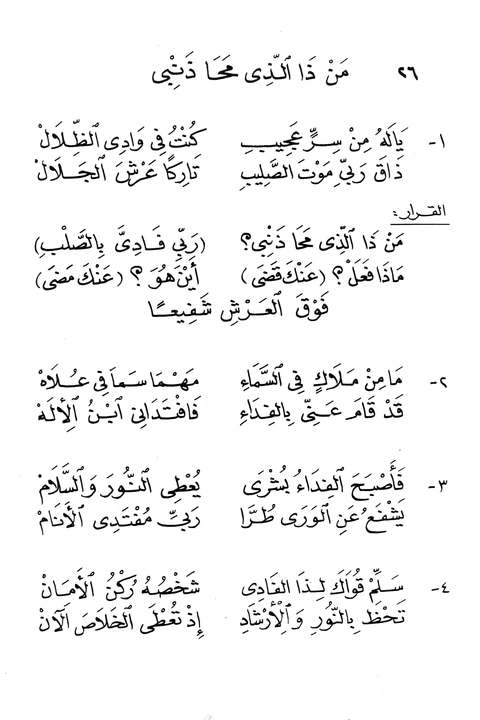 ٢٦ مَنْ ذَا ٱلَّذِى مَحَا ذَنْبِى
١- يَالَهُ مِنْ سِرٍّ عَجِيبِ كُنْتُ فِى وَادِى ٱلظِّلَالْ
ذَاقَ رَبِّى مَوْتَ ٱلصَّلِيبِ تَارِكًا عَرْشَ ٱلجَلَالْ
القرار:
مَنْ ذَا ٱلَّذِى مَحَا ذَنْبِى؟ (رَبِّى فَادِىَّ بِالصَّلْبِ)
مَاذَا فَعَلْ؟ (عَنْكَ قَضَى) أَيْنَ هُوَ؟ (عَنْكَ مَضَى)
فَوْقَ ٱلعَرْشِ شَفِيعًا
٢- مَا مِنْ مَلَاكٍ فِى ٱلسَّمَاءِ مَهْمَا سَمَا فِى عُلَاهْ
قَدْ قَامَ عَنِّى بِالفِدَاءِ فَافْتَدَانِى ٱبْنُ ٱلْإِلَهْ
٣- فَأَصْبَحَ ٱلفِدَاءُ بُشْرَى يُعْطِى ٱلنُّورَ وَٱلسَّلَامْ
يَشْفَعُ عَنِ ٱلوَرَى طُرَّا رَبِّى مُفْتَدِى ٱلأَنَامْ
٤- سَلِّمْ قُوَاكَ لِذَا ٱلفَادِى شَخْصُهُ رُكْنُ ٱلأَمَانْ
تَحْظَ بِالنُّورِ وَٱلْأِرْشَادِ إِذْ تُعْطَى ٱلخَلَاصَ ٱلآنْ